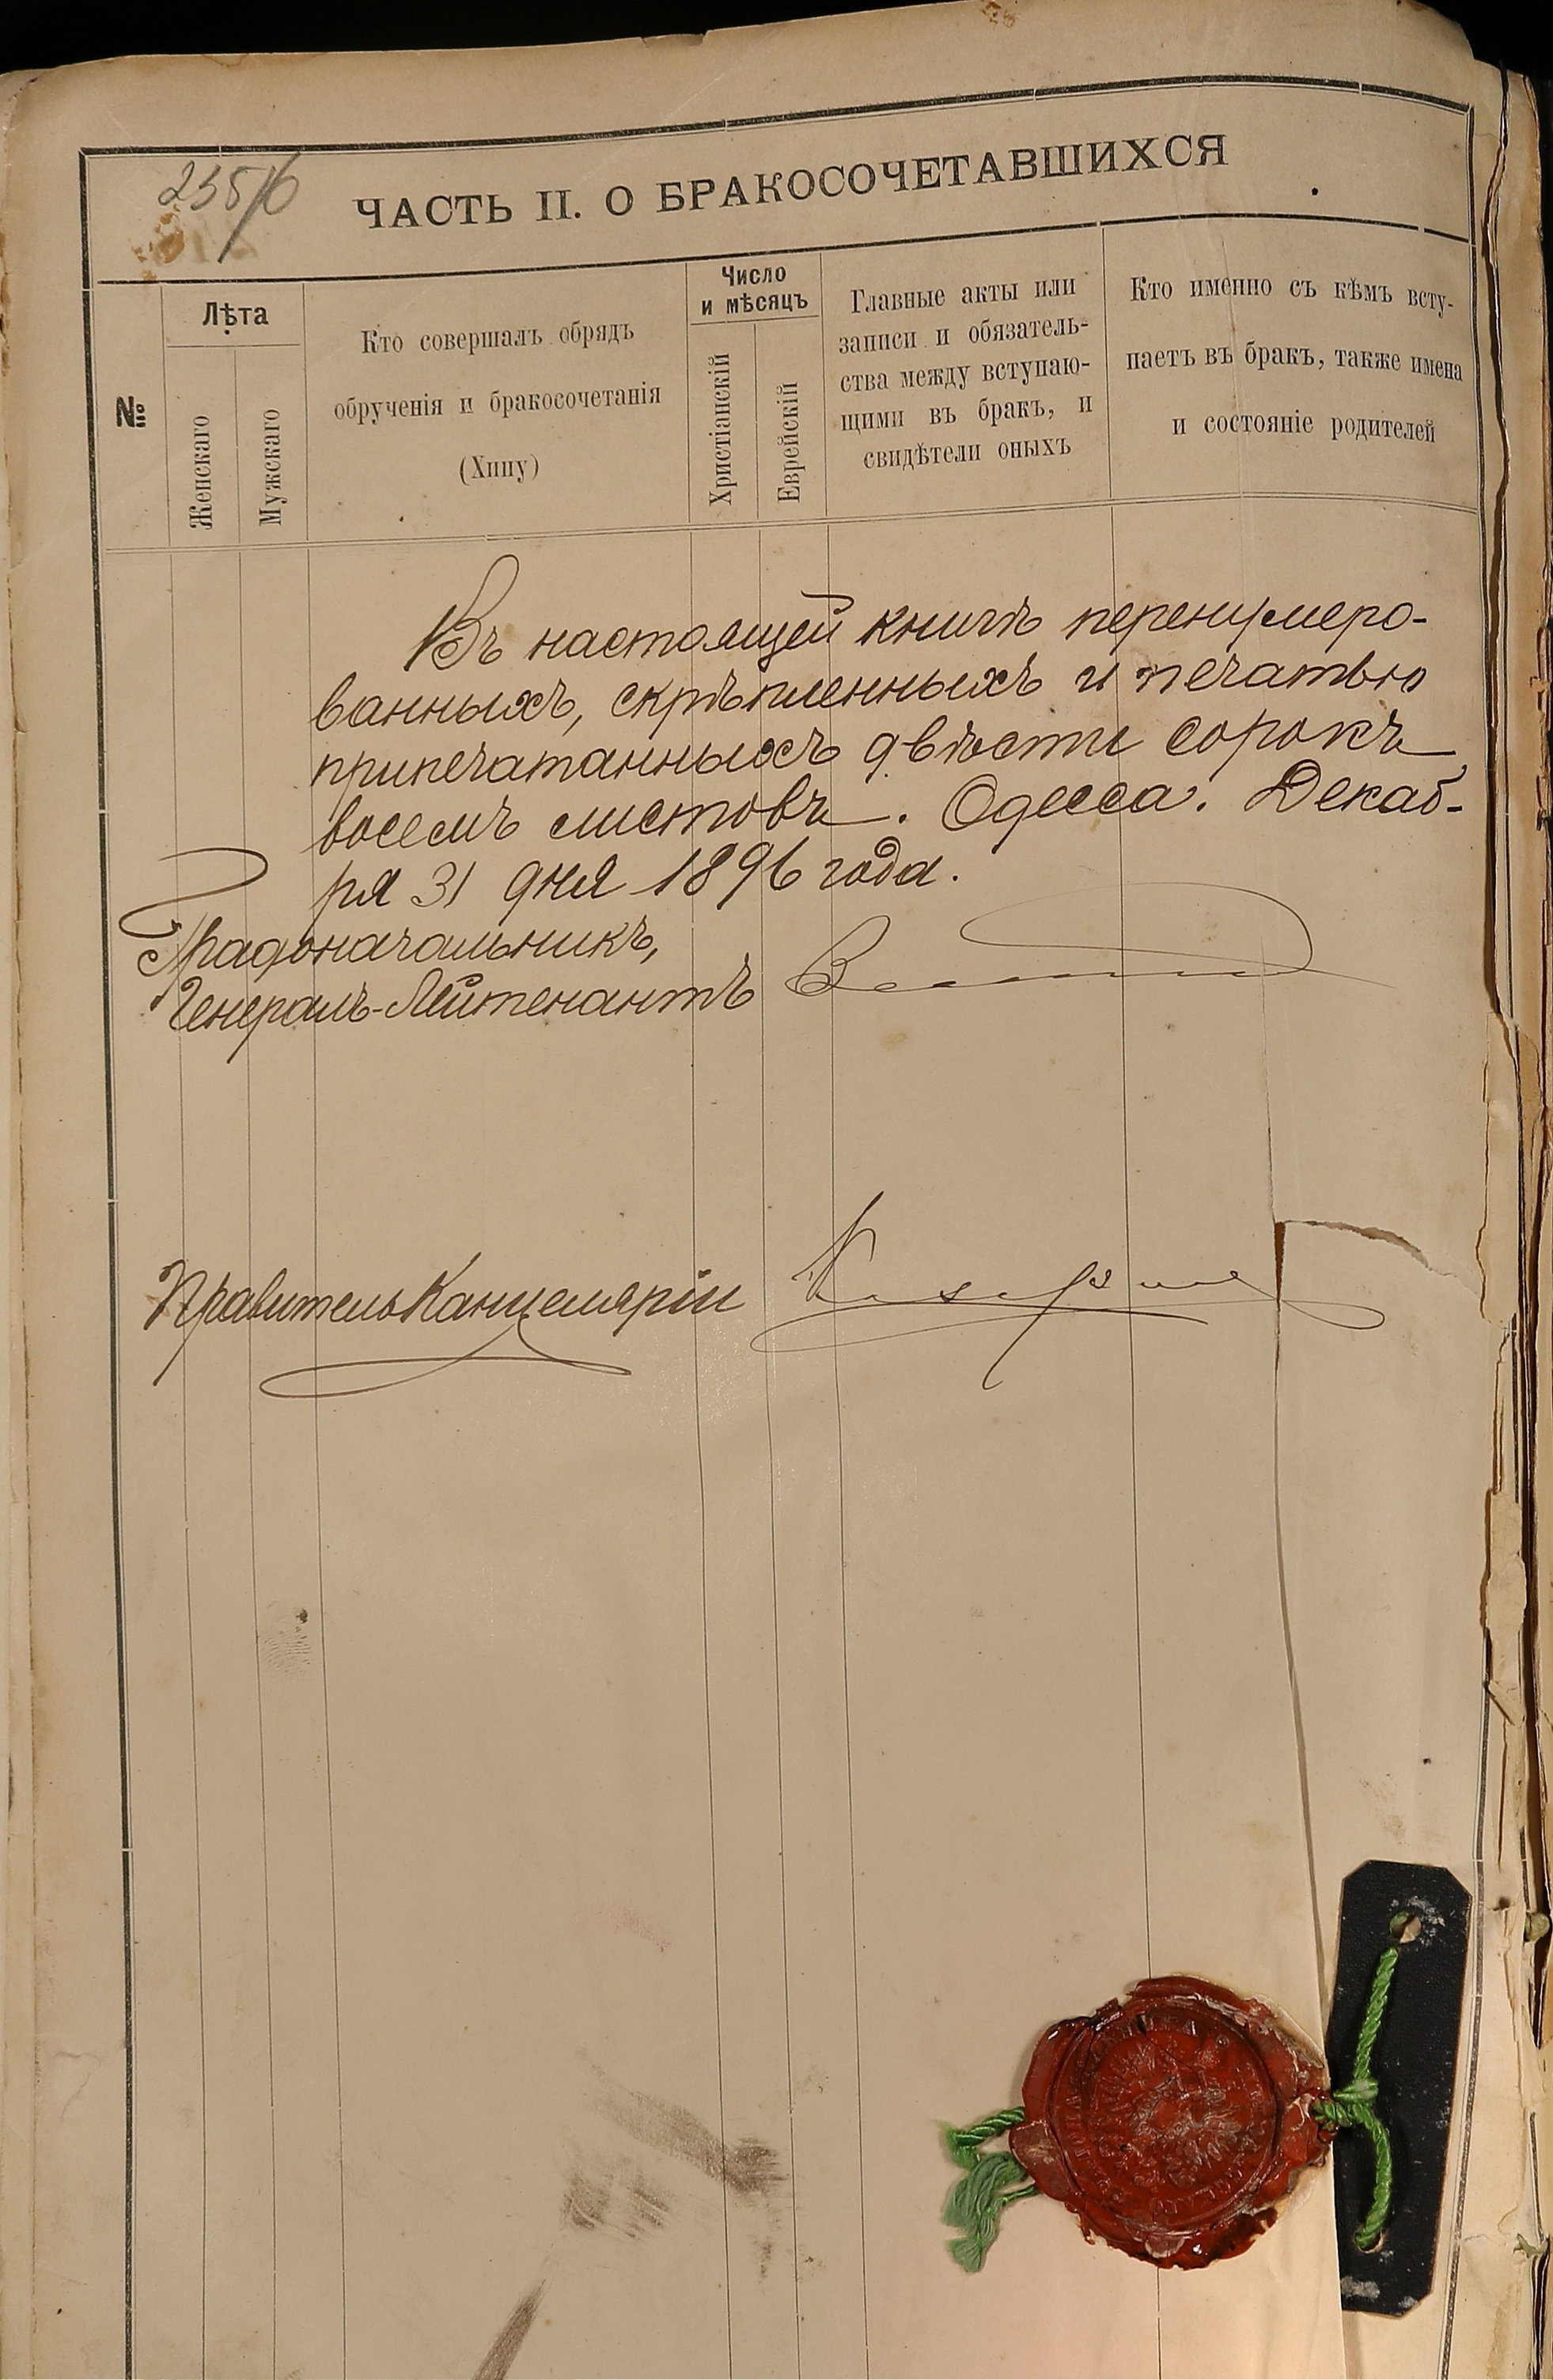 ЧАСТЬ II. О БРАКОСОЧЕТАВШИХСЯ
№
Лѣта
Женскаго
Мужскаго
Кто совершалъ обрядъ
обрученія и бракосочетанія
(Хипу)
Число
и мѣсяцъ
Христіанскій
Еврейскій
Главные акты или
записи и обязатель-
ства между вступаю-
щими въ бракъ, и
свидѣтели оныхъ
Кто именно съ кѣмъ всту-
паетъ въ бракъ, также имена
и состояніе родителей
Въ настоящей книгѣ перенумеро-
ванныхъ, скрѣпленныхъ и печатью
припечатанныхъ двѣсти сорокъ
восемъ листовъ. Одесса. Декаб-
ря 31 дня 1896 года.
Градоначальникъ,
Генералъ-Лейтенантъ
Правитель Канцеляріи